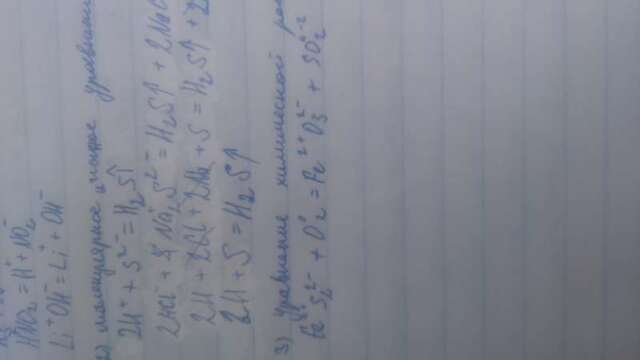 HNO₂ = H⁺ + NO₂⁻
Li⁺OH⁻ = Li⁺ + OH⁻
2) молекулярное уравнени
2H⁺ + S²⁻ = H₂S↑
2HCl + Na₂S²⁻ = H₂S↑ + 2NaC
2H + 2Cl + 2Na + S = H₂S↑ + 2
2H + S = H₂S↑
3) уравнение химической реа
Fe S₂²⁻ + O₂⁰ = Fe₂⁺O₃²⁻ + SO₂⁻²